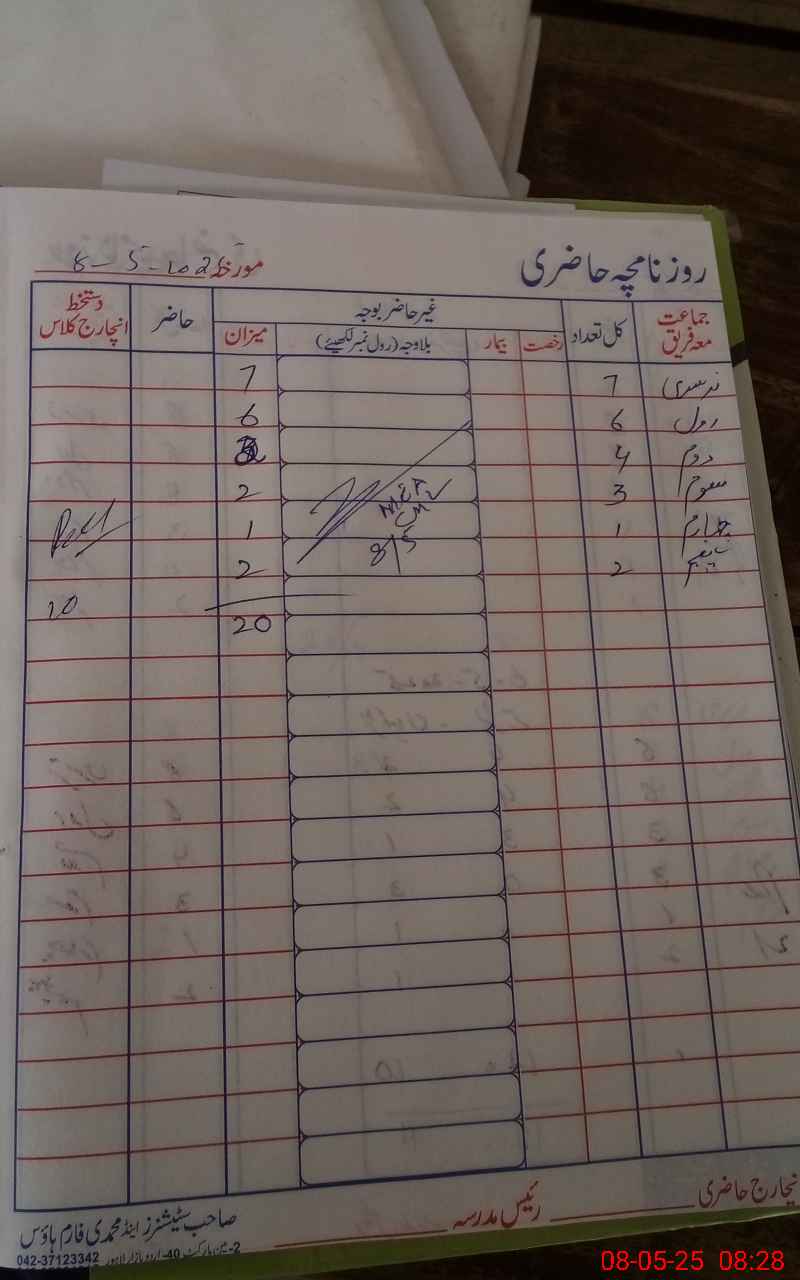 روزنامچہ حاضری
مورخہ 8-5-2025
جماعت معہ فریق
کل تعداد
غیر حاضر بوجہ
رخصت
بیمار
بلاوجہ (رول نمبر لکھیئے)
میزان
حاضر
دستخط انچارج کلاس
نرسری 7 7
اول 6 6
دوم 4
سوم 3 2
چہارم 1 1
پنجم 2 2
MEA
8/5
10
20
انچارج حاضری
رئیس مدرسہ
صاحب سٹیشنرز اینڈ محمدی فارم ہاؤس
2-مین مارکیٹ 40-اردو بازار لاہور 042-37123342
08-05-25 08:28